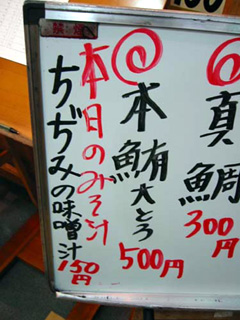 真鯛
300円
本鮪大とろ
500円
本日のみそ汁
ちぢみの味噌汁
150円